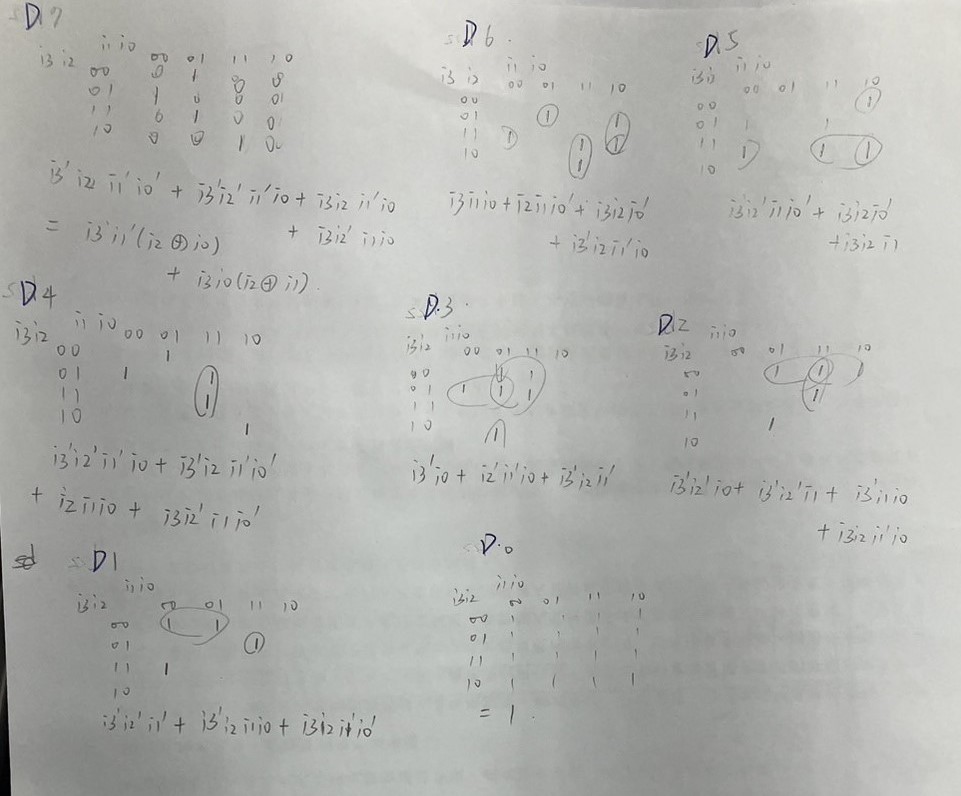 D7
i1 i0
i3 i2 00 01 11 10
00 0 1 0 0
01 1 0 0 0
11 0 1 0 0
10 0 0 1 0
i3'i2 i1'i0' + i3'i2'i1'i0 + i3i2 i1'i0
= i3'i1'(i2⊕i0) + i3i2'i1i0
+ i3i0(i2⊕i1).
D6.
i1 i0
i3 i2 00 01 11 10
00
01 1 1
11 1 1 1
10 1
i3i1i0 + i2i1i0' + i3i2i0'
+ i3'i2i1'i0
D5
i1 i0
i3i2 00 01 11 10
00 1
01 1 1
11 1 1 1
10
i3'i2'i1i0' + i3i2i0'
+ i3i2 i1
D4
i1 i0
i3i2 00 01 11 10
00 1
01 1 1
11 1
10 1
i3'i2'i1'i0 + i3'i2 i1'i0'
+ i2i1i0 + i3i2'i1i0'
D.3.
i1i0
i3i2 00 01 11 10
00 1 1
01 1 1 1
11
10 1
i3'i0 + i2'i1'i0 + i3'i2i1'
D2
i1i0
i3i2 00 01 11 10
00 1 1 1
01 1
11 1
10
i3'i2'i0 + i3'i2'i1 + i3'i1i0
+ i3i2i1'i0
D1
i1i0
i3i2 00 01 11 10
00 1 1
01 1
11 1
10
i3'i2'i1' + i3'i2i1i0 + i3i2i1'i0'
D.0
i1i0
i3i2 00 01 11 10
00 1 1 1 1
01 1 1 1 1
11 1 1 1 1
10 1 1 1 1
= 1.